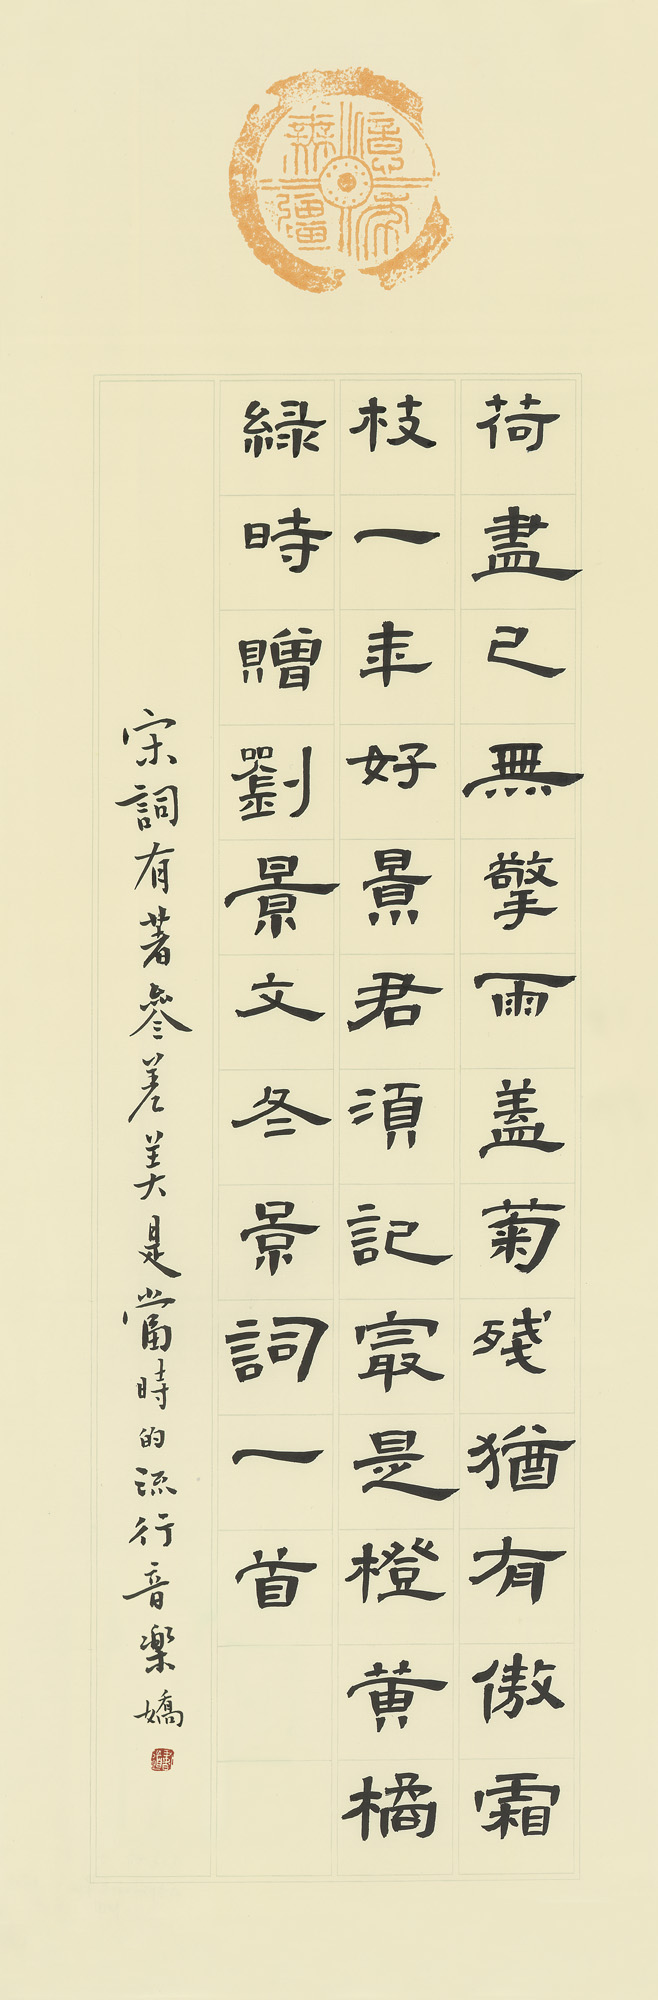 億年無疆
荷盡已無擎雨蓋菊殘猶有傲霜
枝一年好景君須記冣是橙黃橘
緑時贈劉景文冬景詞一首
宋詞有著參差美是當時的流行音樂嬌